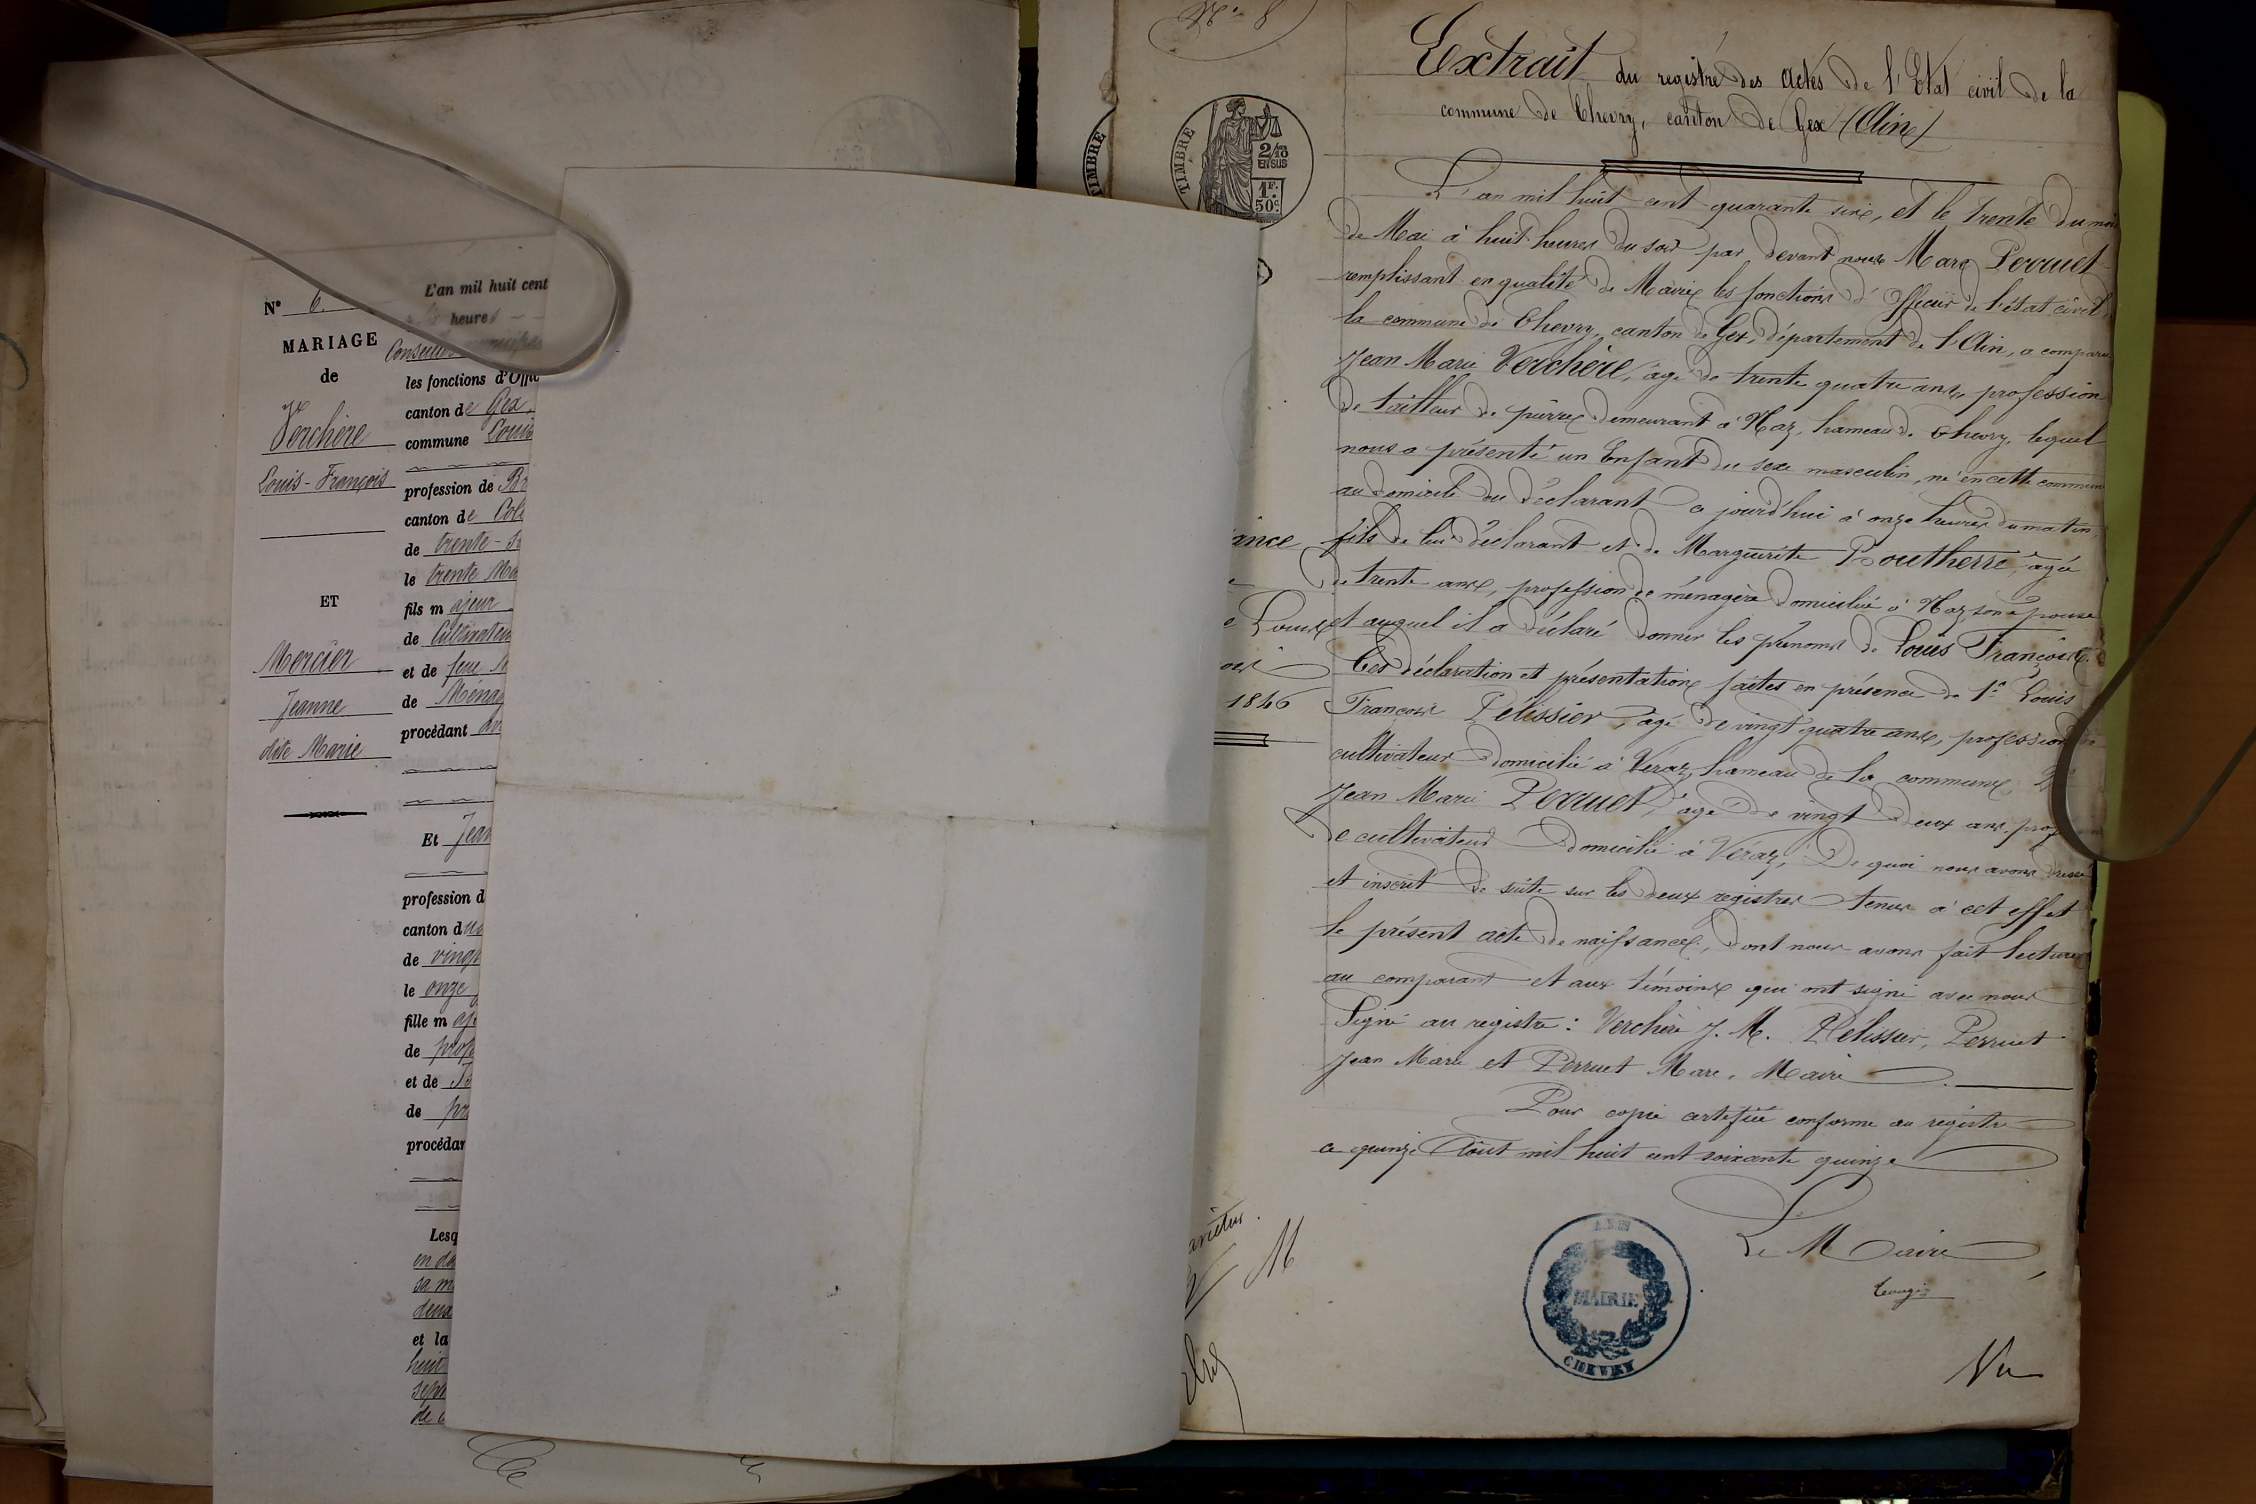 N° 6.
MARIAGE
de
Verchère
Louis-François
ET
Mercier
Jeanne
dite Marie
L'an mil huit cent
heures
les fonctions d'Offic
canton de Gex,
commune
profession de
canton de
de trente-
le trente
fils majeur
de Cultivateu
et de feu
de Ménag
procédant
Et Jean
profession d
canton d
de vingt
le onze
fille m
de prop
et de
de
procédan
Lesq
en
sa m
deux
et la
huit
sept
de
N° 8
TIMBRE
TIMBRE
2/10
EN SUS
1F.
50c.
Extrait du registre des actes de l'Etat civil de la
commune de Chevry, canton de Gex (Ain)
L'an mil huit cent quarante six, et le trente du mois
de Mai à huit heures du soir par devant nous Marc Perruet
remplissant en qualité de Maire les fonctions d'Officier de l'état civil de
la commune de Chevry, canton de Gex, département de l'Ain, a comparu
Jean Marie Verchère, âgé de trente quatre ans, profession
de tailleur de pierre demeurant à Naz, hameau de Chevry, lequel
nous a présenté un Enfant du sexe masculin, né en cette commune
au domicile du déclarant ce jourd'hui à onze heures du matin
fils de lui déclarant et de Marguerite Poutherré, âgée
de trente ans, profession de ménagère domiciliée à Naz son épouse
et auquel il a déclaré donner les prénoms de Louis François.
Ces déclaration et présentation faites en présence de 1° Louis
François Pélissier, âgé de vingt quatre ans, profession de
cultivateur domicilié à Véraz, hameau de la commune 2°
Jean Marie Perruet, âgé de vingt deux ans, prof
de cultivateur domicilié à Véraz, De quoi nous avons dressé
et inscrit de suite sur les deux registres tenus à cet effet
le présent acte de naissance, dont nous avons fait lecture
au comparant et aux témoins qui ont signé avec nous
Signé au registre : Verchère J. M. Pélissier, Perruet
Jean Marie et Perruet Marc, Maire
Pour copie certifiée conforme au registre
ce quinze Août mil huit cent soixante quinze
Le Maire
Vu
ance
Louis
1846
M
AIN
MAIRIE
CHEVRY